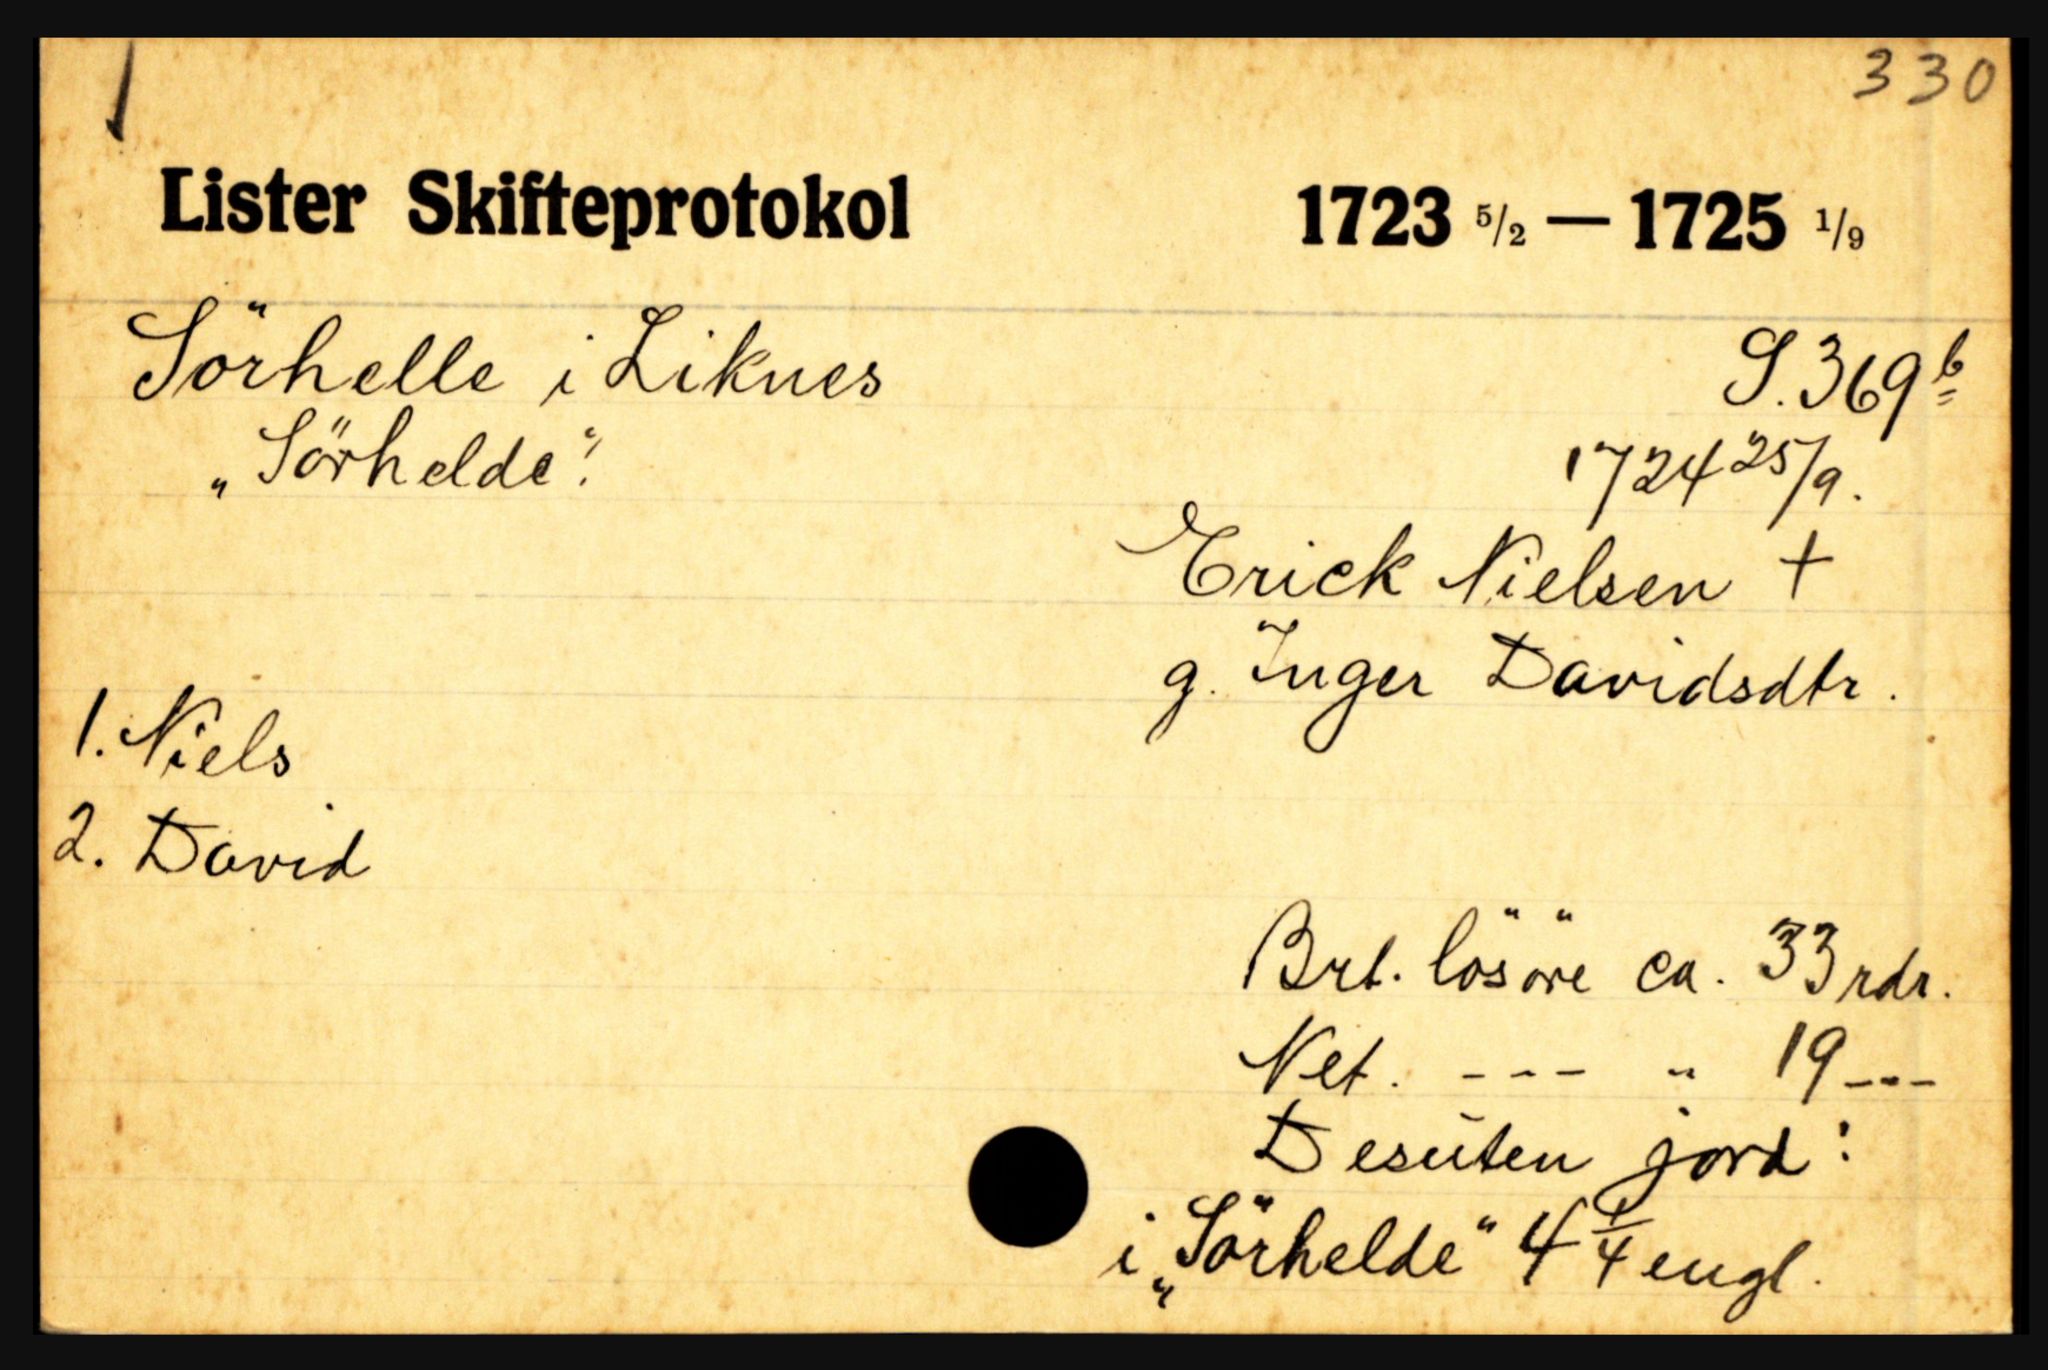 330
Lister Skifteprotokol 1723 5/2 — 1725 1/9
Sörhelle i Liknes S. 369 b
„Sörhelde".
1724 25/9.
Erick Nielsen †
g. Inger Davidsdtr.
1. Niels
2. David
Brt. lösöre ca. 33 rdr.
Net. --- " 19 ---
Desuten jord:
i „Sörhelde" 4 1/4 engl.